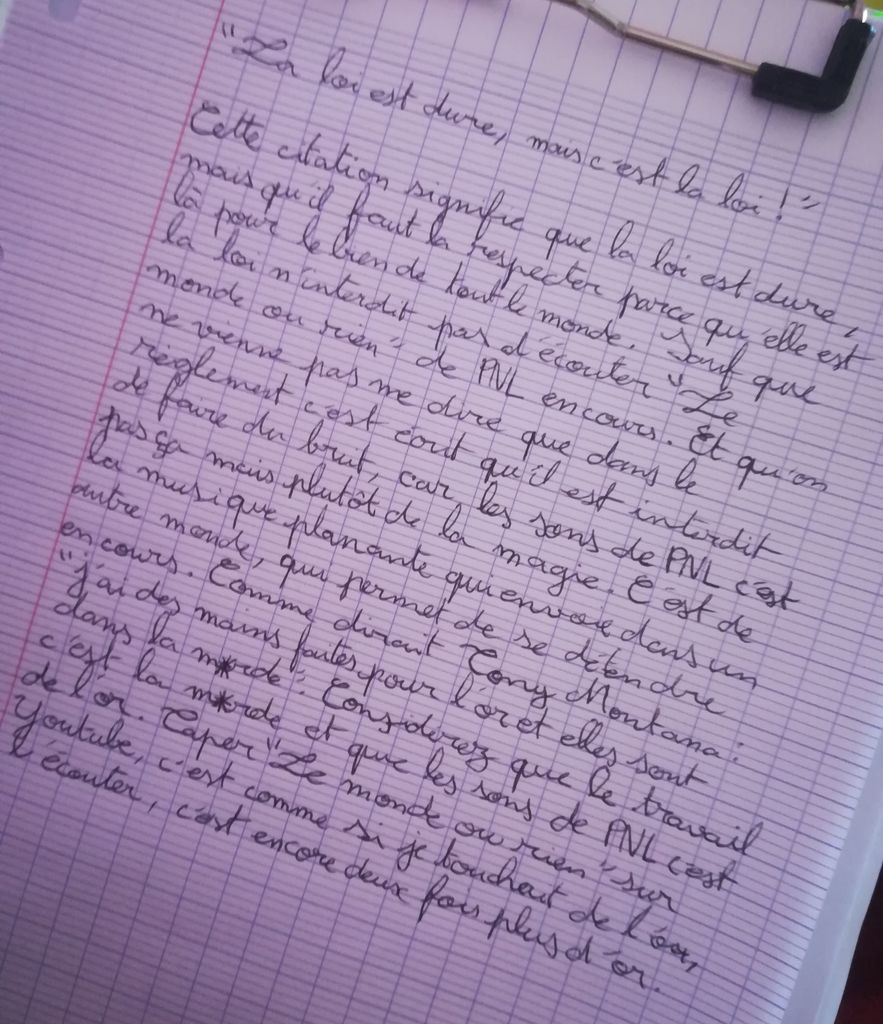 "La loi est dure, mais c'est la loi !"
Cette citation signifie que la loi est dure,
mais qu'il faut la respecter parce qu'elle est
là pour le bien de tout le monde. Sauf que
la loi n'interdit pas d'écouter "Le
monde ou rien" de PNL en cours. Et qu'on
ne vienne pas me dire que dans le
règlement c'est écrit qu'il est interdit
de faire du bruit, car les sons de PNL c'est
pas ça mais plutôt de la magie. C'est de
la musique planante qui envoie dans un
autre monde, qui permet de se détendre
en cours. Comme dirait Tony Montana :
"j'ai des mains faites pour l'or et elles sont
dans la m*rde". Considerez que le travail
c'est la m*rde et que les sons de PNL c'est
de l'or. Taper "Le monde ou rien" sur
Youtube, c'est comme si je touchait de l'or,
l'écouter, c'est encore deux fois plus d'or.